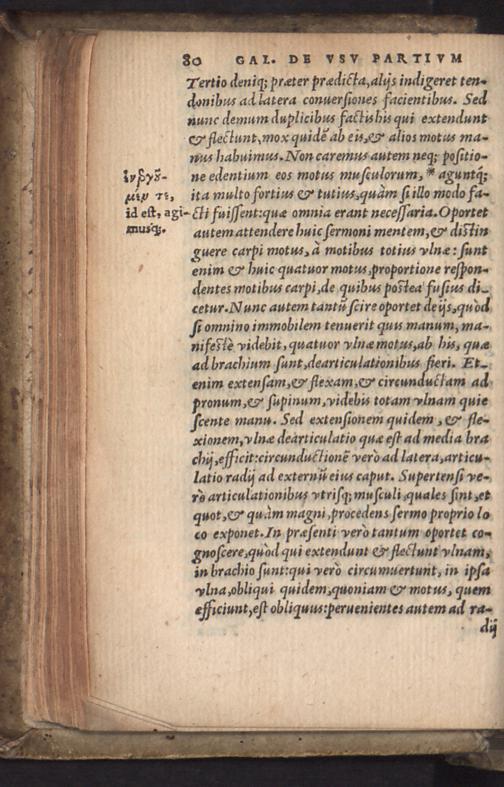 80 GAL. DE VSV PARTIVM
Tertio deniq; præter prædicta, alijs indigeret ten-
donibus ad latera conuersiones facientibus. Sed
nunc demum duplicibus factis his qui extendunt
& flectunt, mox quidē ab eis, & alios motus ma-
nus habuimus. Non caremus autem neq; positio-
ne edentium eos motus musculorum, * aguntq́;
ita multo fortius & tutius, quàm si illo modo fa-
cti fuissent: quæ omnia erant necessaria. Oportet
autem attendere huic sermoni mentem, & distin
guere carpi motus, à motibus totius vlnæ: sunt
enim & huic quatuor motus, proportione respon-
dentes motibus carpi, de quibus postea fusius di-
cetur. Nunc autem tantū scire oportet de ijs, quòd
si omnino immobilem tenuerit quis manum, ma-
nifestè videbit, quatuor vlnæ motus, ab his, quæ
ad brachium sunt, dearticulationibus fieri. Et-
enim extensam, & flexam, & circunductam ad
pronum, & supinum, videbis totam vlnam quie
scente manu. Sed extensionem quidem, & fle-
xionem, vlnæ dearticulatio quæ est ad media bra
chij, efficit: circunductionē verò ad latera, articu-
latio radij ad externū eius caput. Supertensi ve-
rò articulationibus vtrisq; musculi, quales sint, et
quot, & quàm magni, procedens sermo proprio lo
co exponet. In præsenti verò tantum oportet co-
gnoscere, quòd qui extendunt & flectunt vlnam,
in brachio sunt: qui verò circumuertunt, in ipsa
vlna, obliqui quidem, quoniam & motus, quem
efficiunt, est obliquus: peruenientes autem ad ra-
dij
id est, agi-
musq́;.